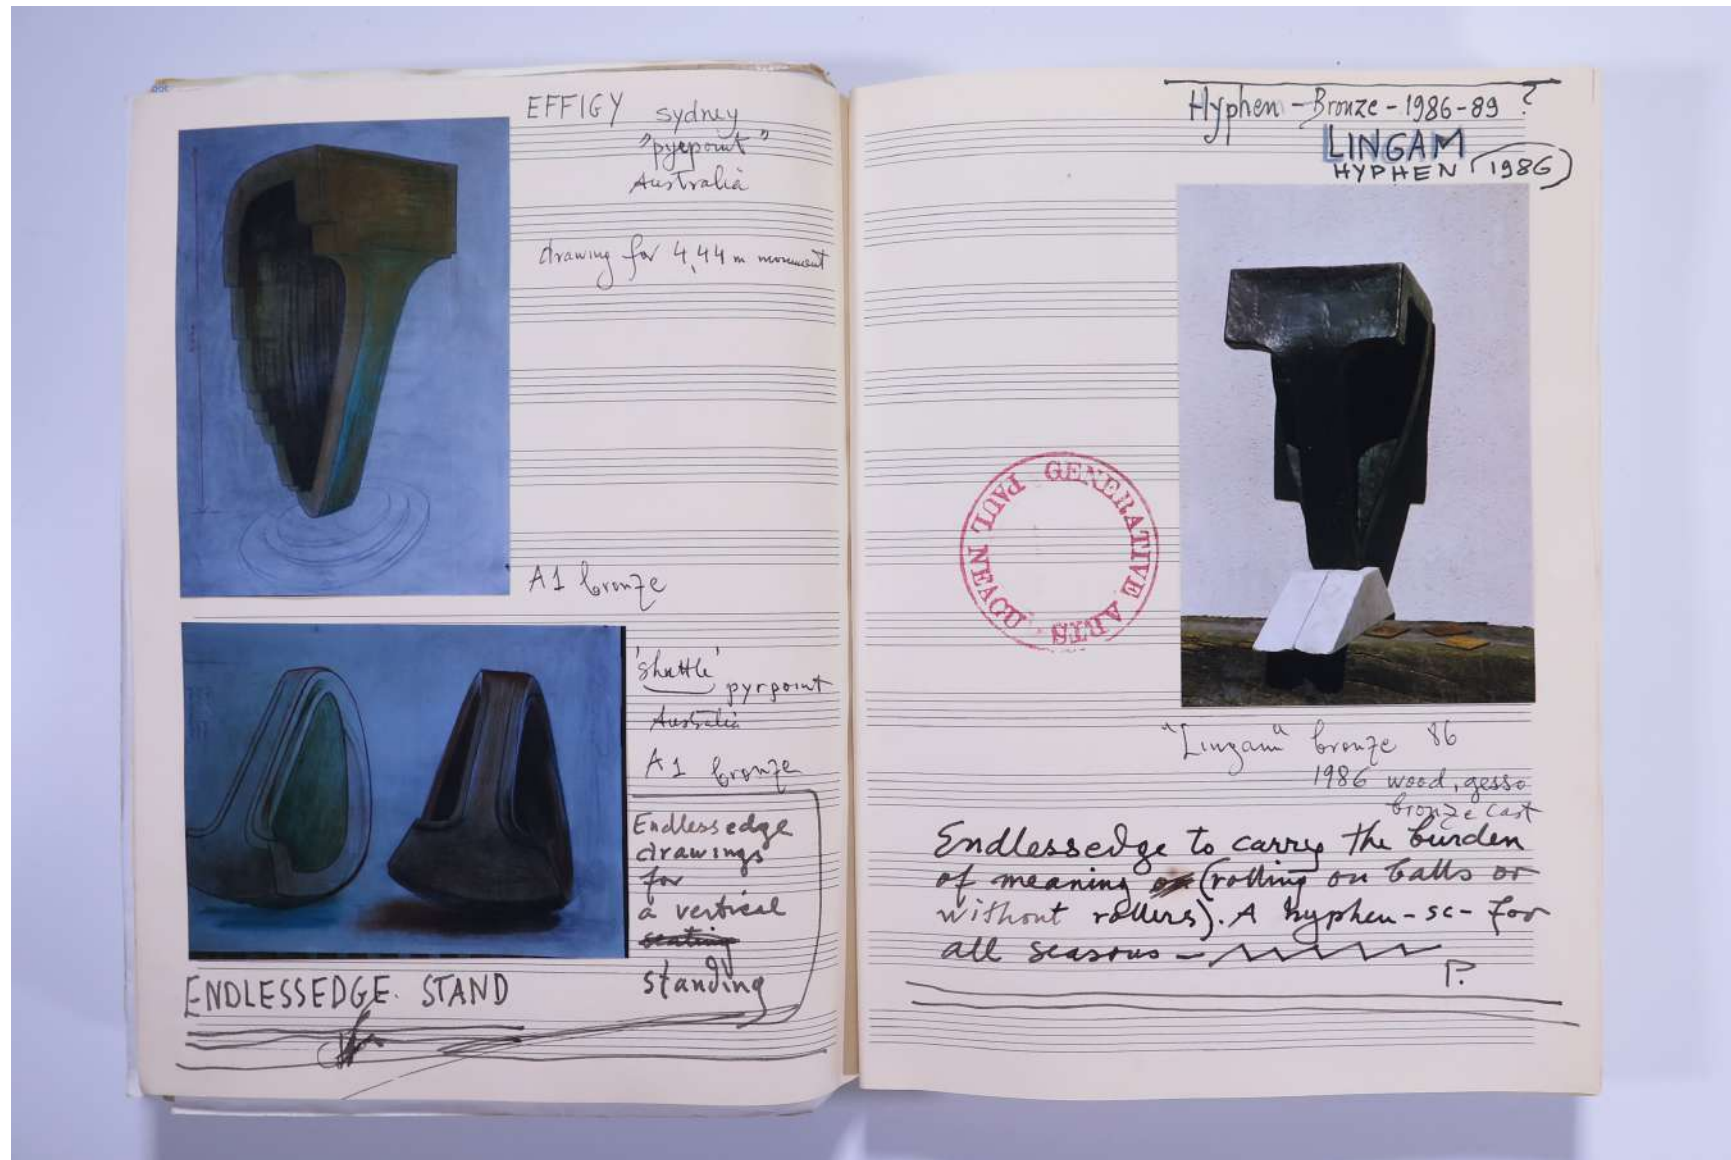 EFFIGY sydney
"pyepoint"
Australia
drawing for 4,44 m monument
A1 bronze
'shuttle'
pyrpoint
Australia
A1 bronze
Endlessedge
drawings
for
a vertical
seating
standing
ENDLESSEDGE. STAND
Hyphen - Bronze - 1986-89 ?
LINGAM
HYPHEN 1986
GENERATIVE ARTS · PAUL NEAGU ·
"Lingam" bronze 86
1986 wood, gesso
bronze cast
Endlessedge to carry the burden
of meaning (rolling on balls or
without rollers). A hyphen - sc - for
all seasons -
P.